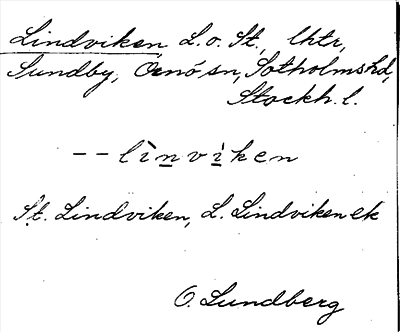 Lindviken, L. o. St., lhtr,
Sundby, Ornö sn, Sotholms hd,
Stockh. l.
– – lìnvìken
St. Lindviken, L. Lindviken ek
O. Lundberg